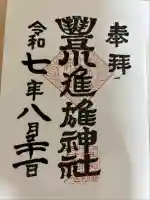 奉拝
豊川進雄神社
令和七年八月三十一日